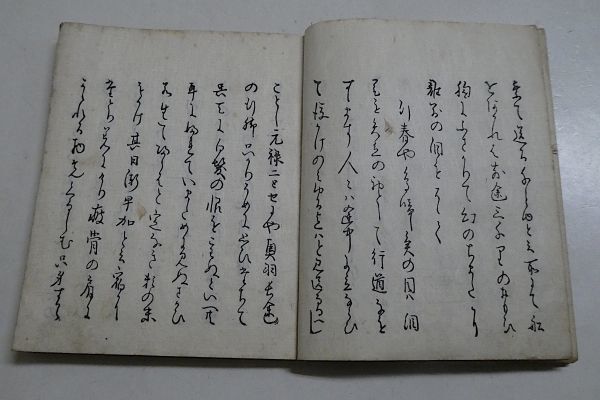 乗て送る千しゆと云所にて船
をあかれは前途三千里のおもひ
胸にふさかりて幻のちまたに
離別の泪をそゝく
行春や鳥啼魚の目は泪
是を矢立の初として行道なを
すゝます人々は途中に立ならひ
て後かけのみゆる迄はと見送るなるへし
ことし元禄二とせにや奥羽長途
の行脚只かりそめに思ひたちて
呉天に白髪の恨を重ぬといへ共
耳にふれていまために見ぬさかひ
若生て帰らはと定なき頼の末
をかけ其日漸早加と云宿に
たとり着にけり痩骨の肩に
かゝれる物先くるしむ只身すから